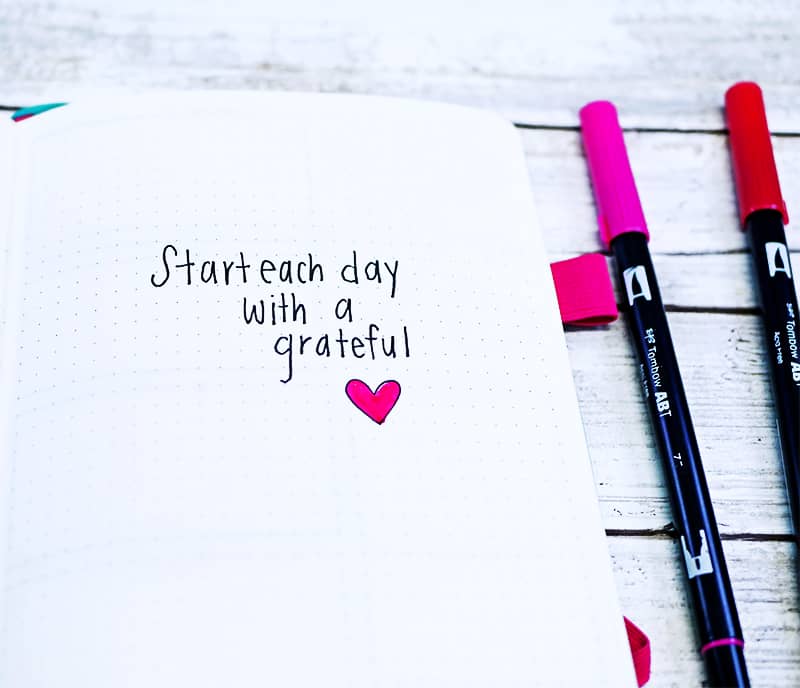 Start each day
with a
grateful
Tombow ABT
Tombow AB